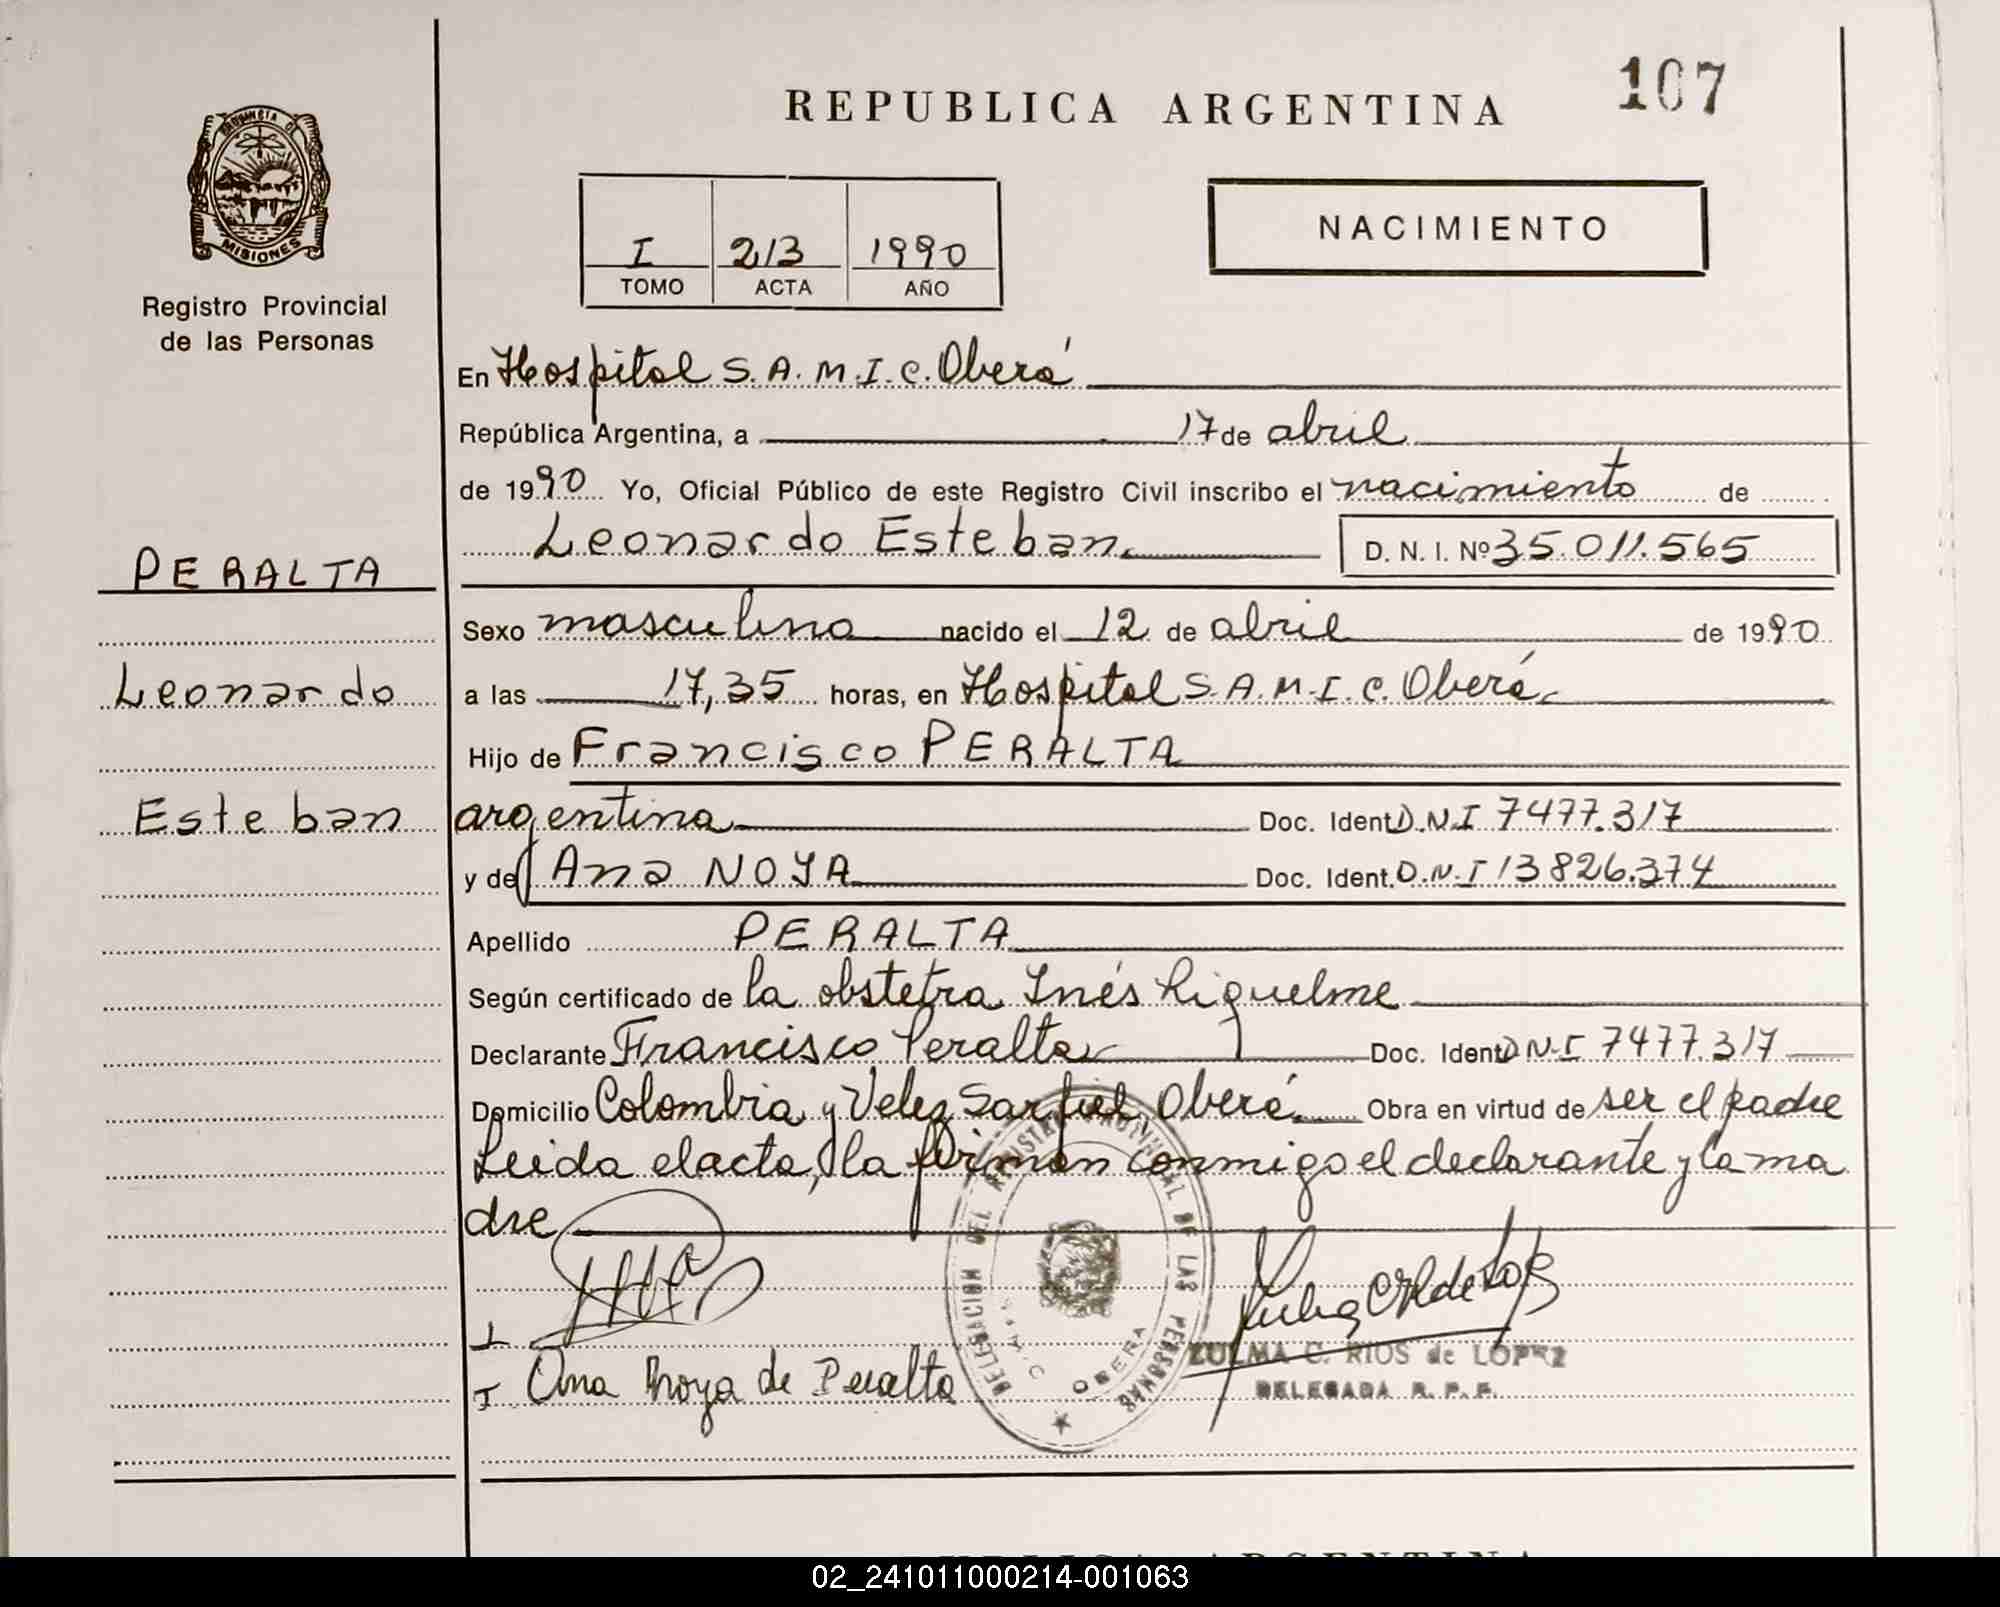 REPUBLICA ARGENTINA
107
PROVINCIA DE
MISIONES
Registro Provincial
de las Personas
I 213 1990
TOMO ACTA AÑO
NACIMIENTO
En Hospital S.A.M.I.C. Oberá
República Argentina, a 17 de abril
de 1990 Yo, Oficial Público de este Registro Civil inscribo el nacimiento de
Leonardo Esteban D. N. I. Nº 35.011.565
PERALTA
Leonardo
Esteban
Sexo masculino nacido el 12 de abril de 1990
a las 17,35 horas, en Hospital S.A.M.I.C. Oberá
Hijo de Francisco PERALTA
argentina Doc. Ident. D.N.I 7477.317
y de Ana NOYA Doc. Ident. D.N.I 13826.374
Apellido PERALTA
Según certificado de la obstetra Inés Riquelme
Declarante Francisco Peralta Doc. Ident. D.N.I 7477.317
Domicilio Colombia y Velez Sarfiel, Oberá Obra en virtud de ser el padre
Leida el acta, la firman conmigo el declarante y la ma
dre
Ana Noya de Peralta
DELEGACION DEL REGISTRO PROVINCIAL DE LAS PERSONAS
OBERA
ZULMA C. RIOS de LOPEZ
DELEGADA R. P. P.
REPUBLICA ARGENTINA
02_241011000214-001063